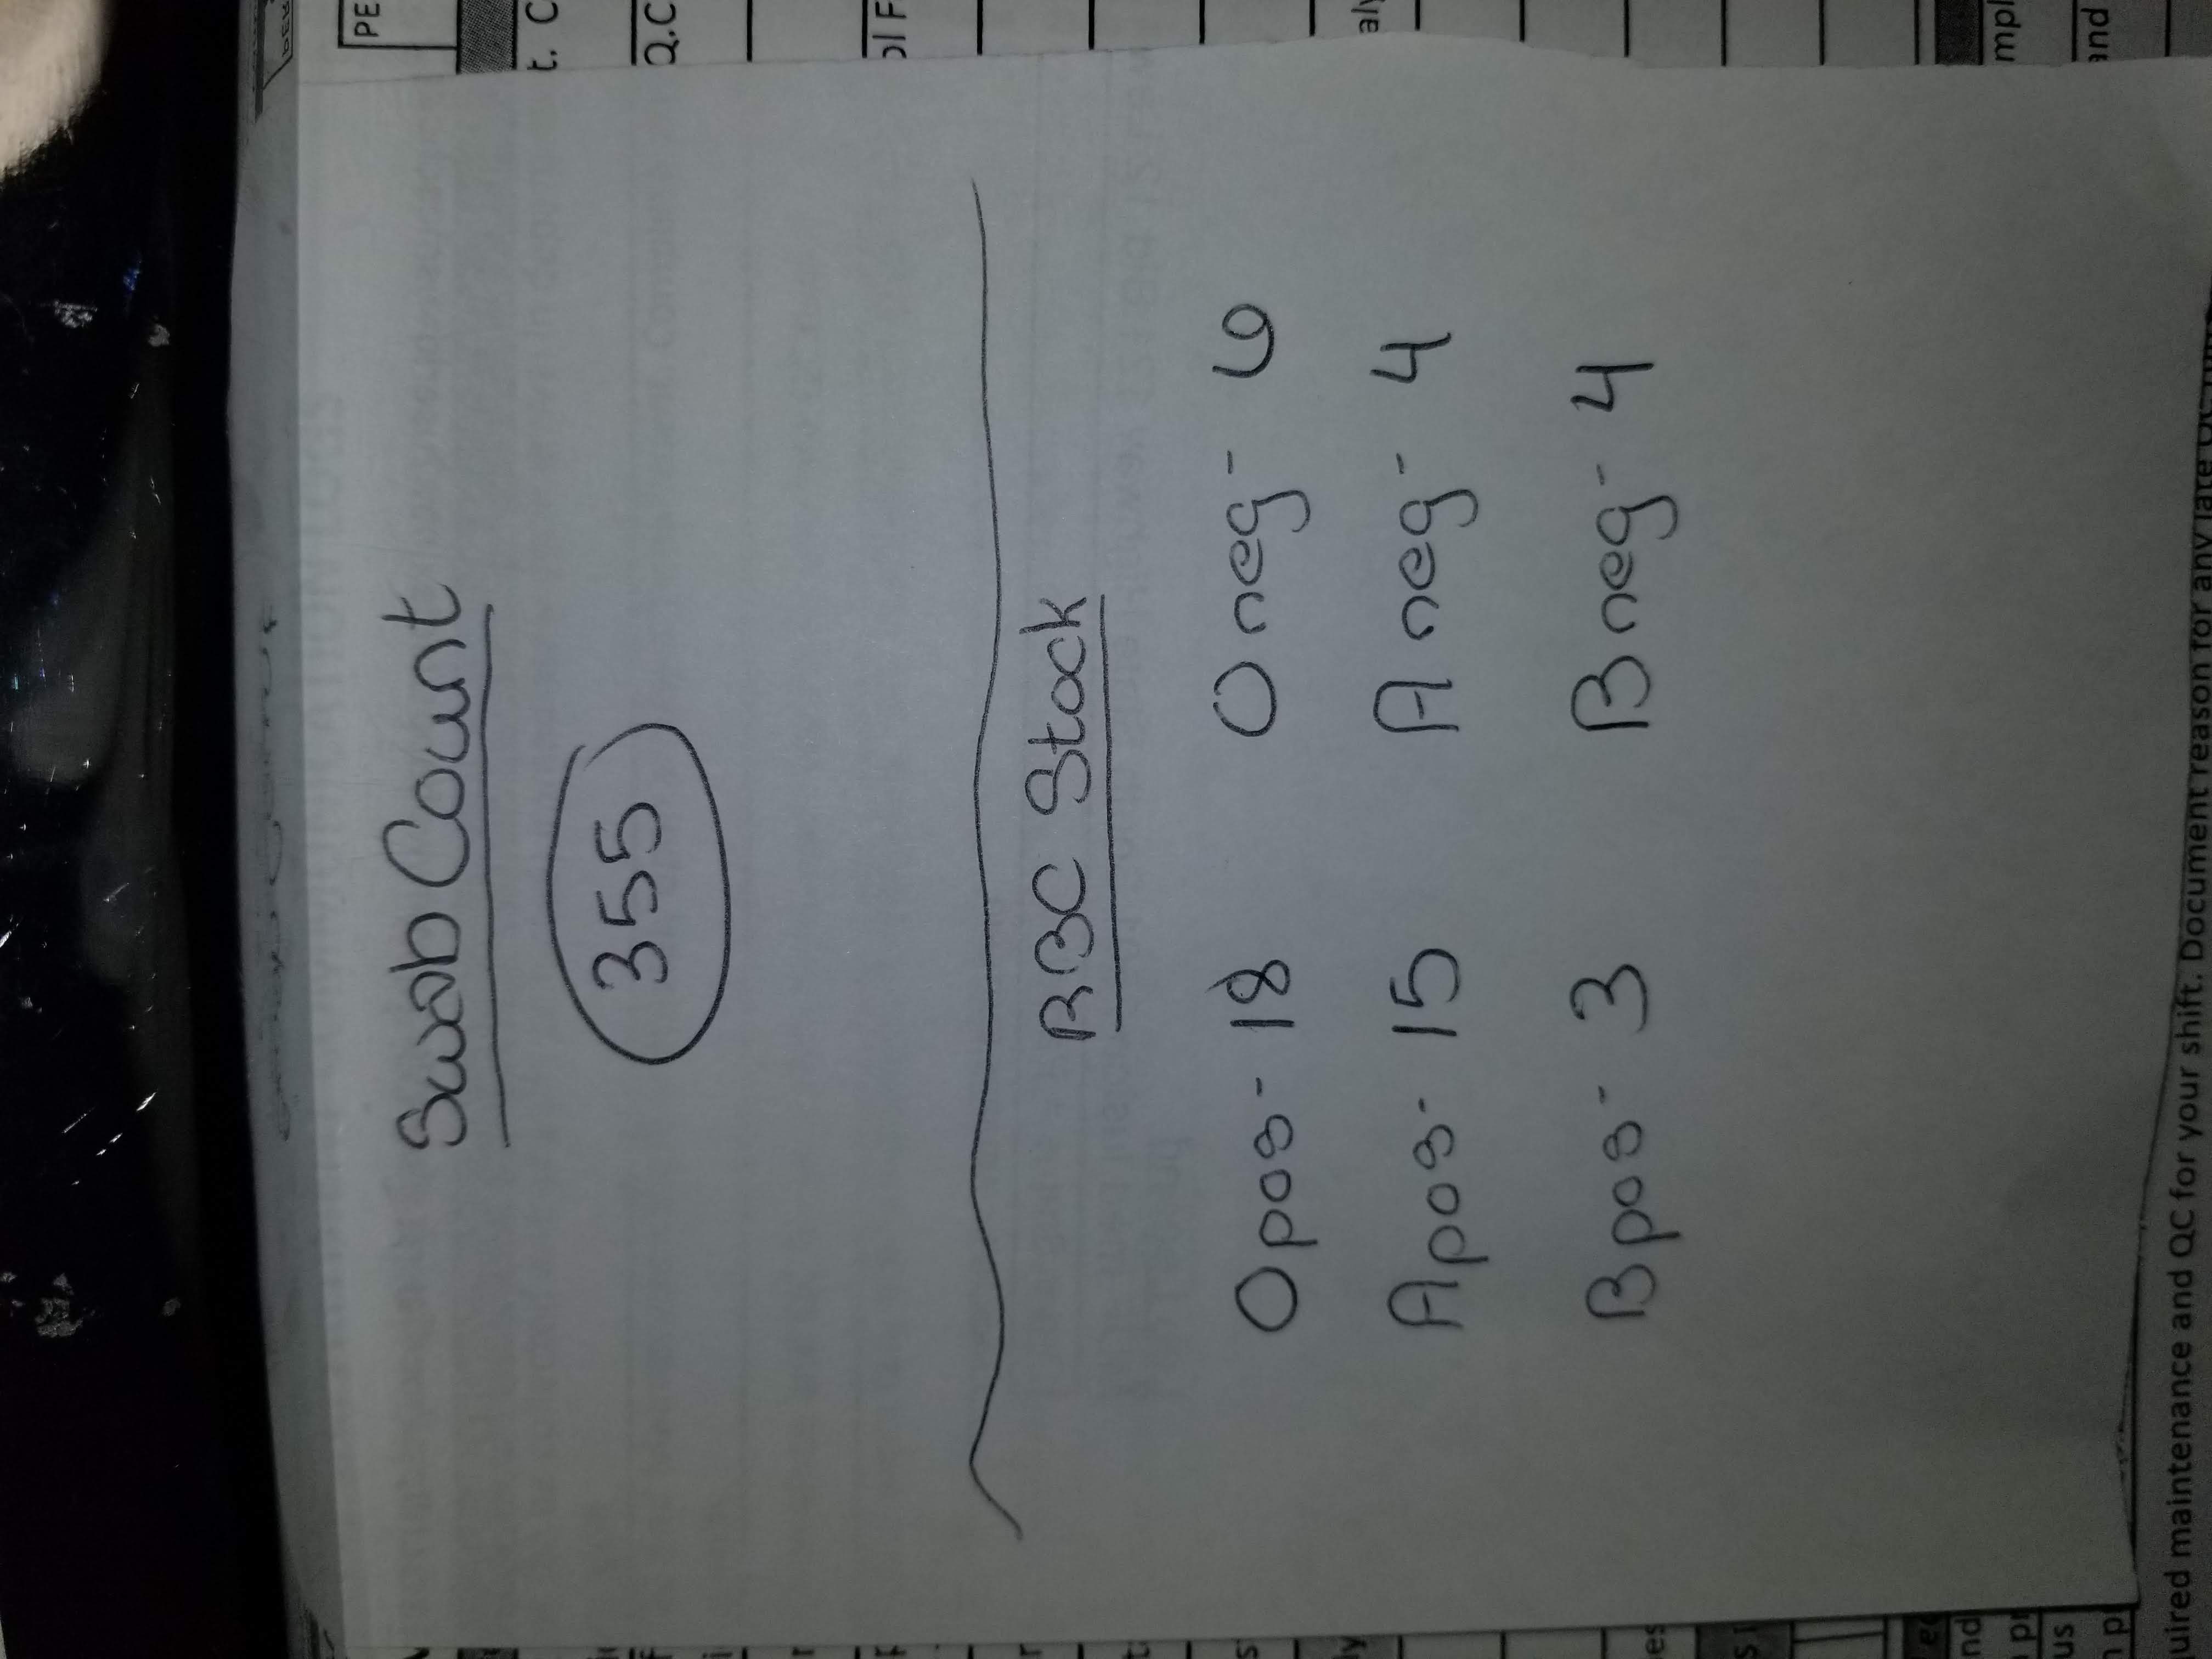 Swab Count
355
RBC Stock
O pos - 18 O neg - 6
A pos - 15 A neg - 4
B pos - 3 B neg - 4
PE
t. C
Q.C
ol F
mpl
and
uired maintenance and QC for your shift. Document reason for any late